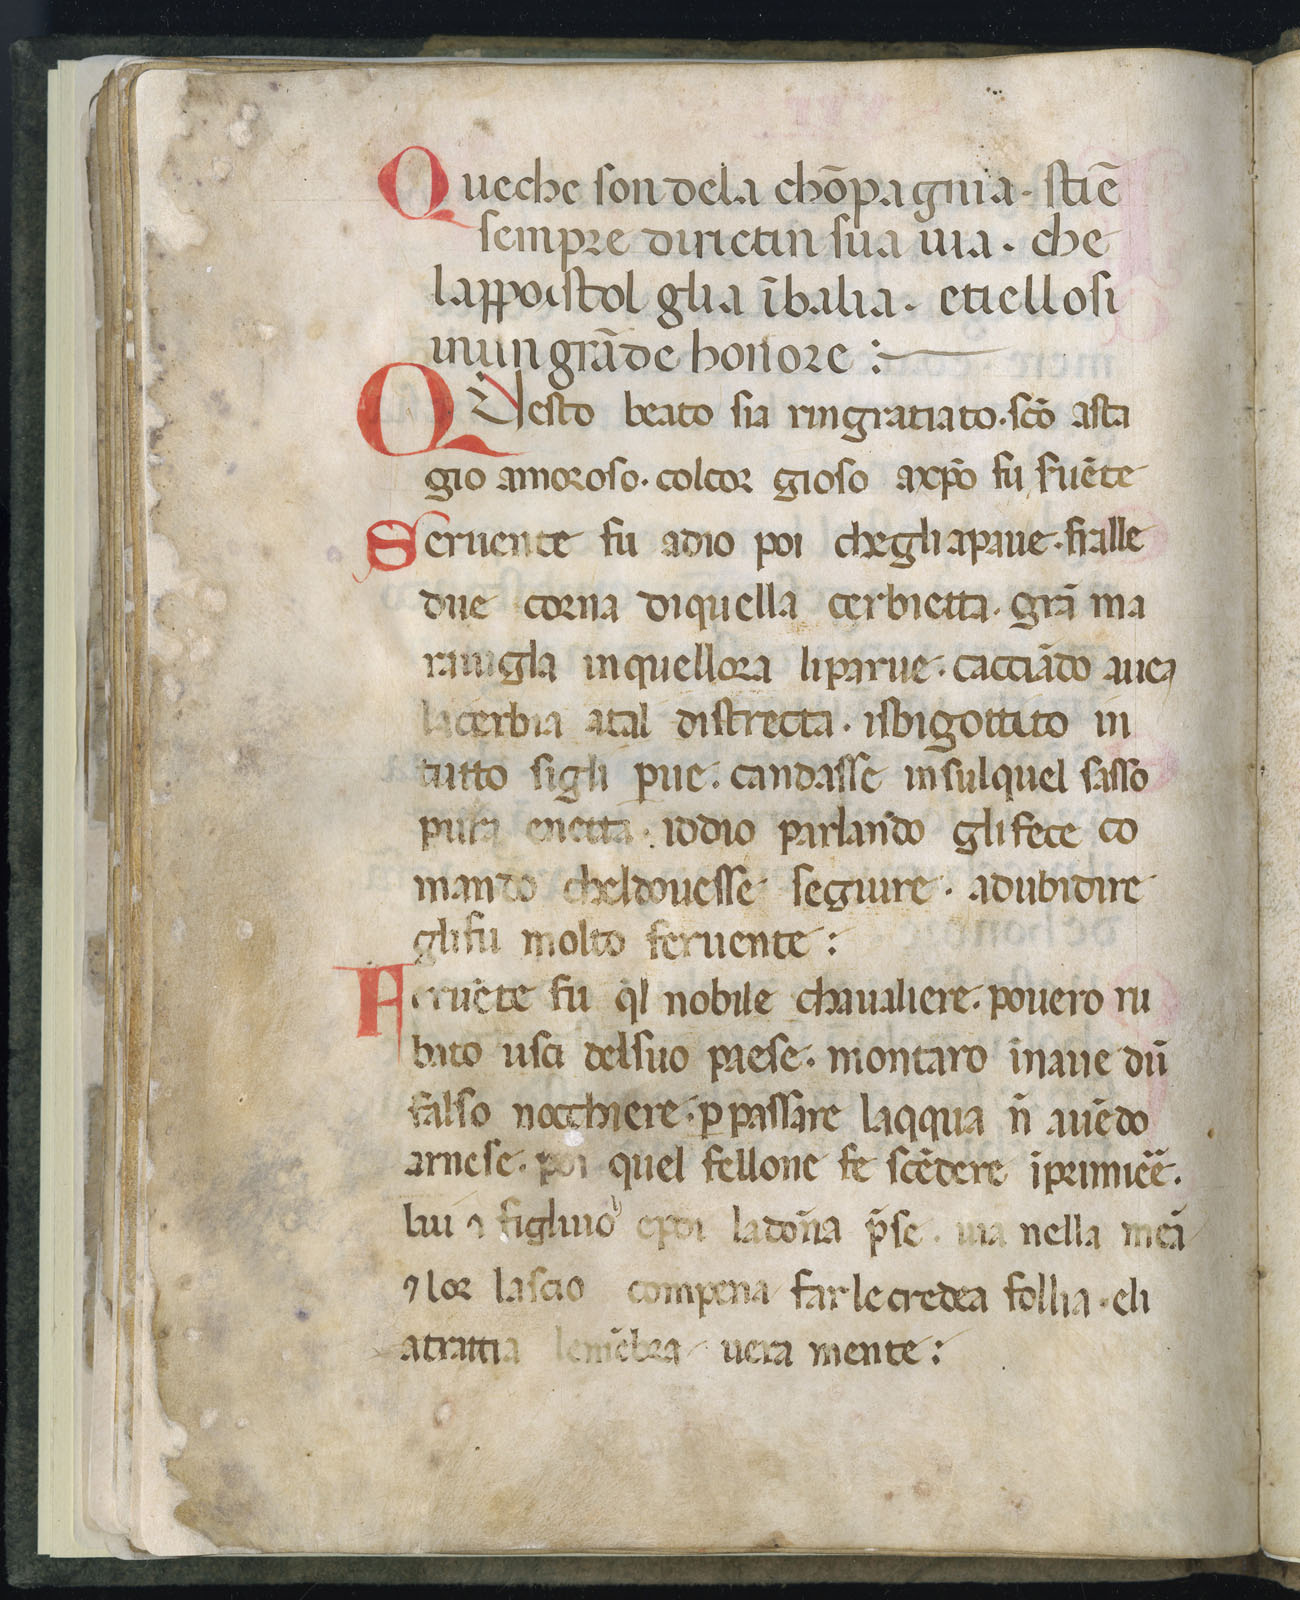 Queche son dela chōpagnia · stiē
sempre dirictin sua uia · che
lappoistol glia ībalia · etiellosi
inun grāde honore :
QVesto beato sia ringratiato · scō asta
gio amoroso · colcor gioso axp̄o fu fuēte
Seruente fu adio poi chegli apaue · fralle
due corna diquella cerbietta · grā ma
rauigla inquellora liparue · cacciādo auea
lacerbia atal distrecta · isbigottito in
tutto sigli pue · candasse insulquel sasso
pura enetta · iddio parlando gli fece co
mando cheldouesse seguire · adubidire
glifu molto feruente :
Feruēte fu q̄l nobile chaualiere · pouero ru
bato usci delsuo paese · montaro inaue dū
falso nocchiere · p passare laqqua n̄ auēdo
arnese · poi quel fellone fe scēdere īprimiēē ·
lui ⁊ figluio epoi ladōna p̄se · uia nella
⁊ lor lascio compena far le credea follia · eli
atrattia lemēbra uera mente :